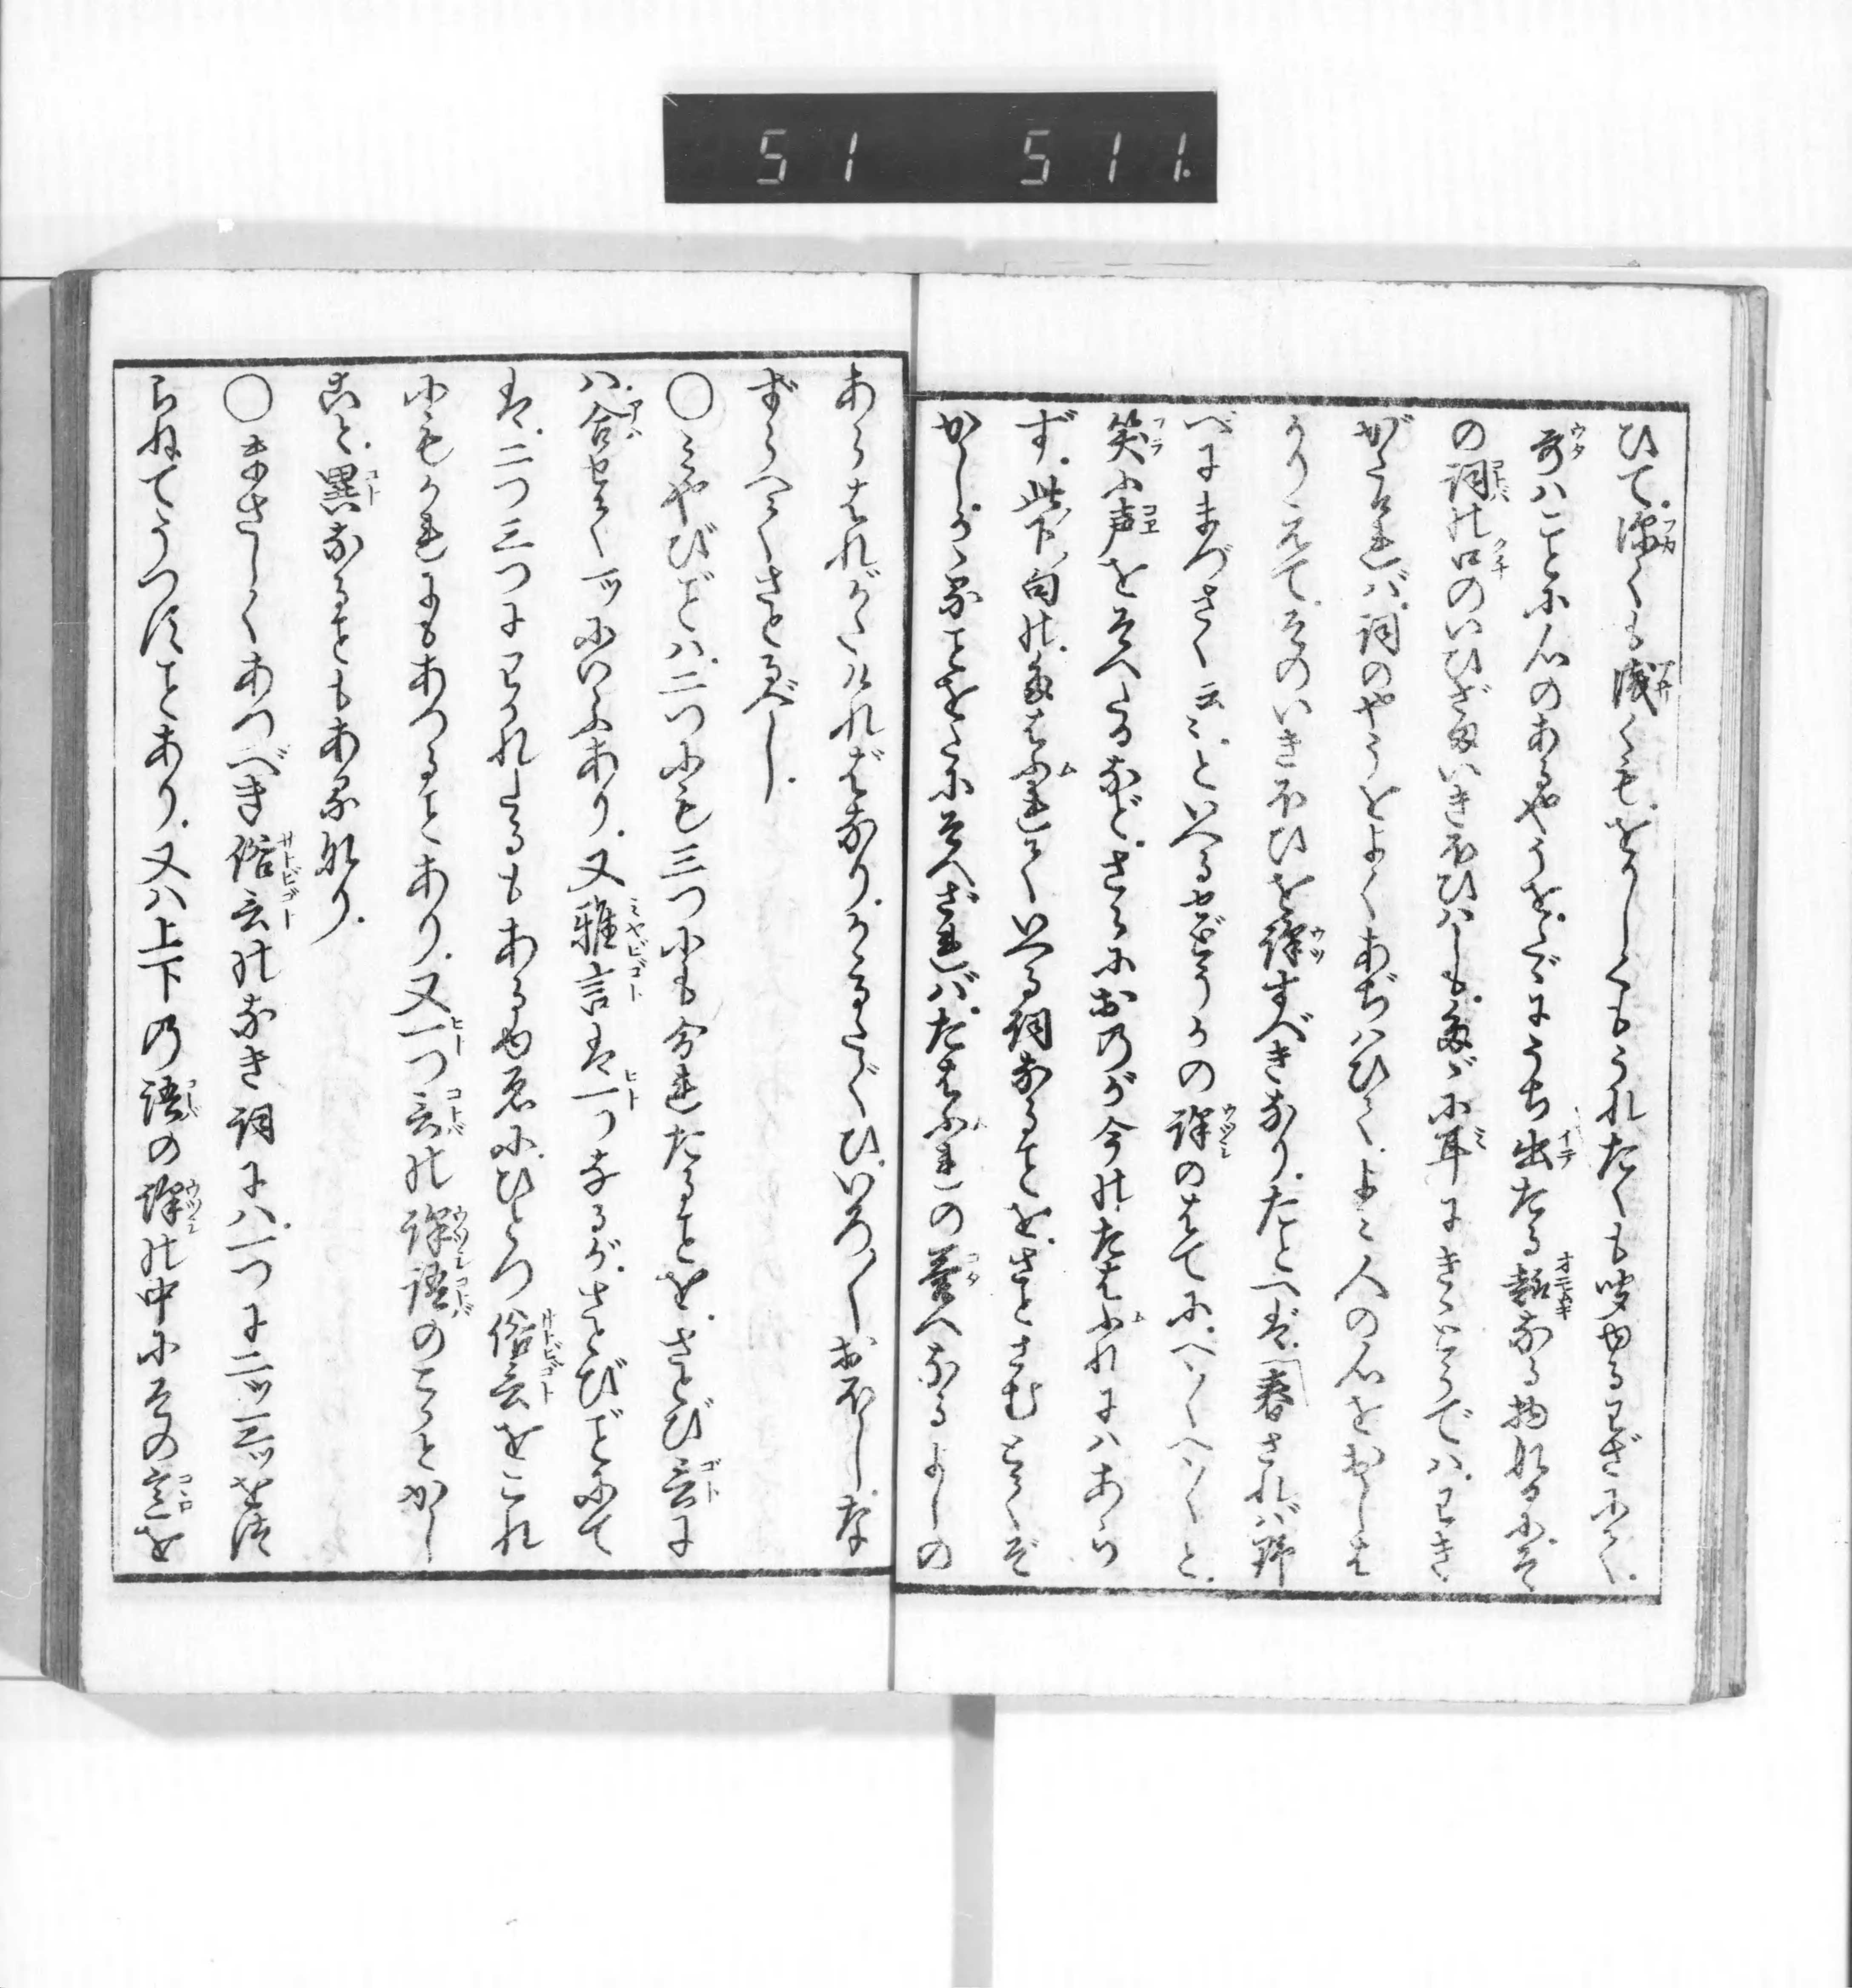 ひて、深くも浅くも、をかしくもうれたくも聞ゆるわざにて、
歌ハことに心のあるやうを、たゞにうち出たる趣なる物なるに、そ
の詞の口のいひざまいきほひハしも、たゞに耳にきゝとらでハ、わき
がたけれバ、詞のやうをよくあぢハひて、よミ人の心をおしは
かりえて、そのいきほひを訳すべきなり、たとへば、「春されバ野
べにまづさく云々、といへるせどうかの訳のはてに、へゝへゝと、
笑ふ声をそへたるなど、さらにおのが今のたはふれにハあら
ず、此下句の、たはふれていへる詞なることを、さとさむとてぞ
かし、かゝることをだにそへざれバ、たはふれの答へなるよしの
あらはれがたけれバなり、かゝるたぐひ、いろ〳〵おほし、な
ずらへてさとるべし、
○ミやびごとハ、二つにも三つにも分れたることを、さとび言に
ハ、合せて一ツにいふあり、又雅言は一つながら、さとびごとにて
は、二つ三つにわかれたるもあるゆゑに、ひとつ俗言をこれ
にもかれにもあつることあり、又一つ言の訳語のこゝとかし
こと、異なることもあるなり、
○まさしくあつべき俗言のなき詞にハ、一つに二ツ三ツをつ
らねてうつすことあり、又ハ上下の語の訳の中に、その意を